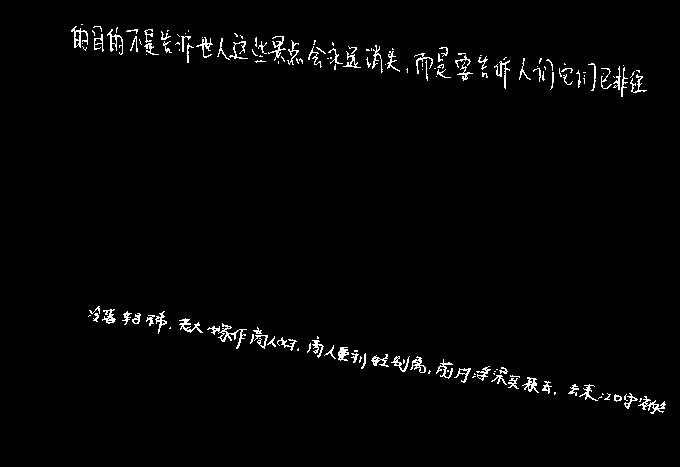 的目的不是告诉世人这些景点会永远消失，而是要告诉人们它们已非往
冷落车马稀，老大嫁作商人妇，商人重利轻别离，前月浮梁买茶去，去来江口守空船